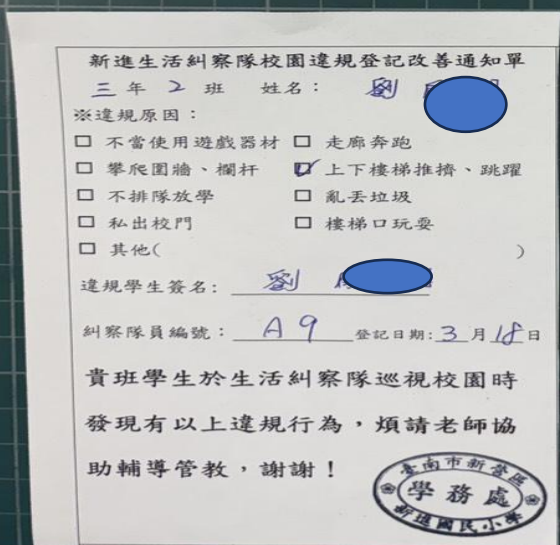 新進生活糾察隊校園違規登記改善通知單
三年2班 姓名：劉
※違規原因：
□ 不當使用遊戲器材 □ 走廊奔跑
□ 攀爬圍牆、欄杆 ☑ 上下樓梯推擠、跳躍
□ 不排隊放學 □ 亂丟垃圾
□ 私出校門 □ 樓梯口玩耍
□ 其他( )
違規學生簽名：劉
糾察隊員編號：A9 登記日期：3月18日
貴班學生於生活糾察隊巡視校園時
發現有以上違規行為，煩請老師協
助輔導管教，謝謝！
臺南市新營區
學務處
新進國民小學